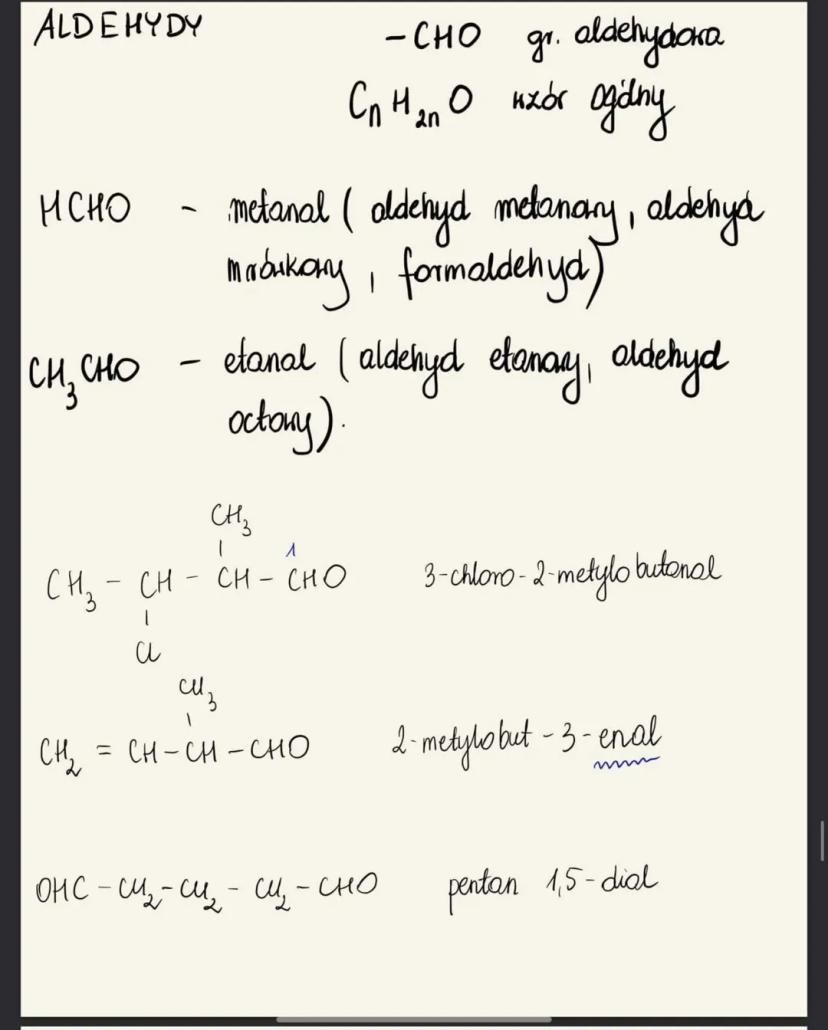 ALDEHYDY
-CHO gr. aldehydowa
CnH2nO wzór ogólny
HCHO - metanal (aldehyd metanowy, aldehyd
mrówkowy, formaldehyd)
CH3CHO - etanal (aldehyd etanowy, aldehyd
octowy).
CH3
|
1
CH3 - CH - CH - CHO 3-chloro-2-metylobutanal
|
Cl
CH3
|
CH2 = CH-CH-CHO 2-metylobut-3-enal
OHC-CH2-CH2-CH2-CHO pentan 1,5-dial